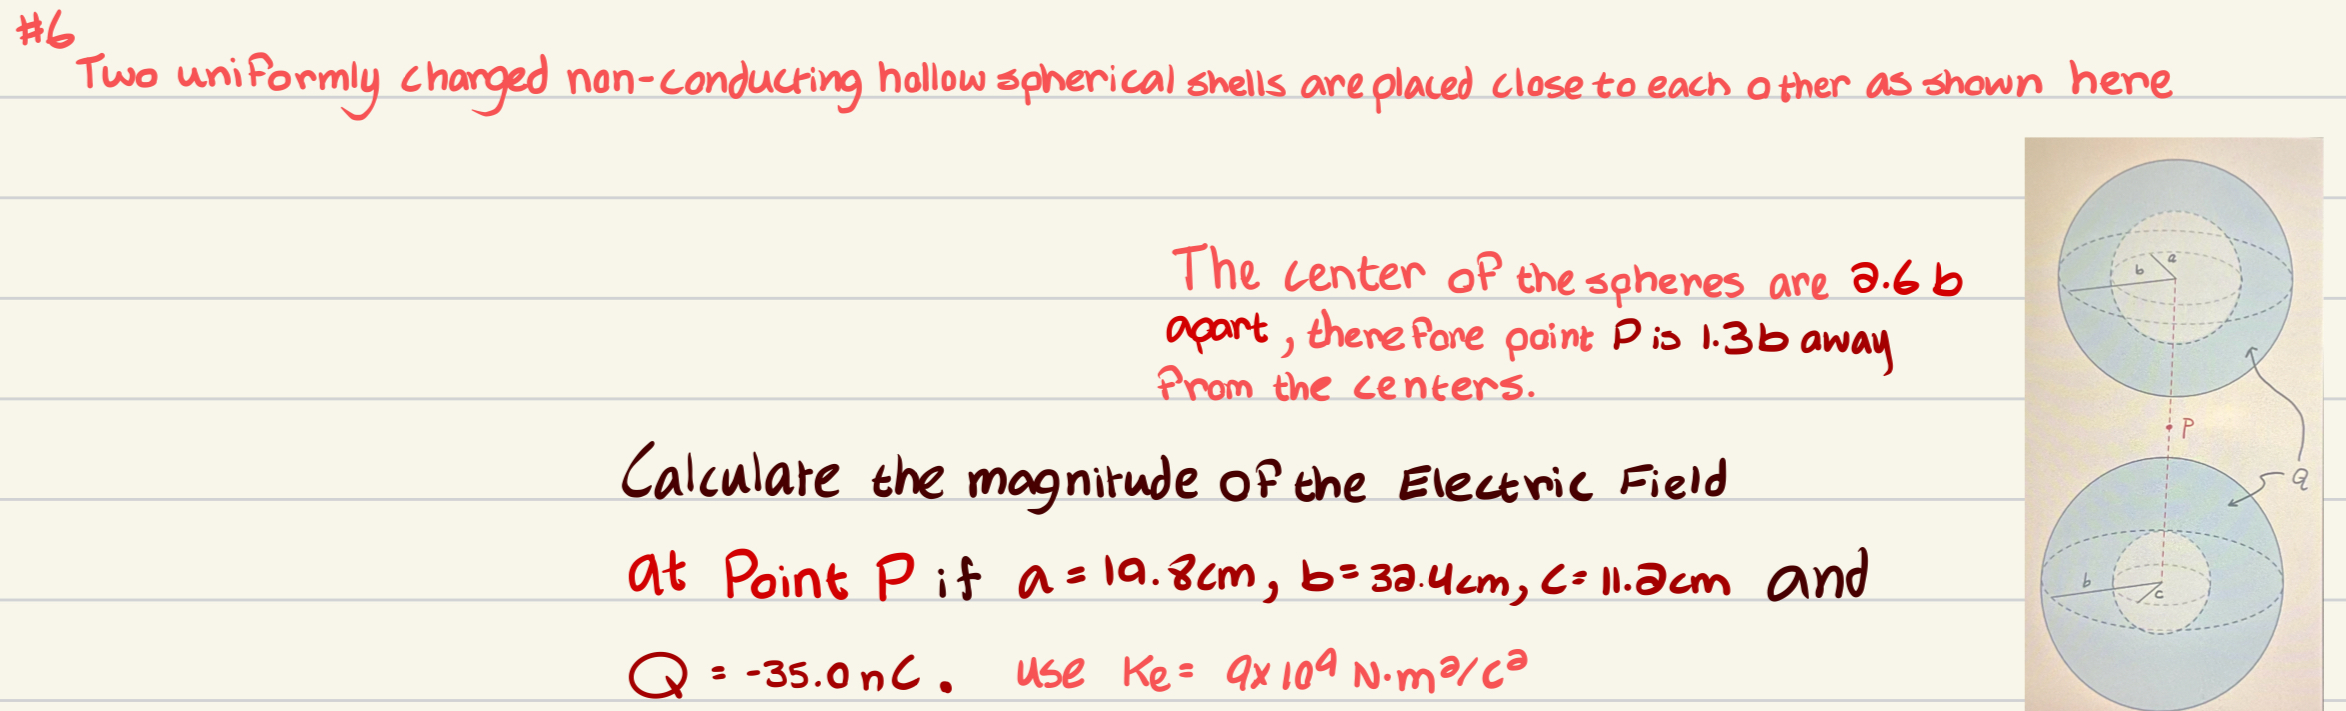 #6
Two uniformly charged non-conducting hollow spherical shells are placed close to each other as shown here
The center of the spheres are 2.6 b
apart, therefore point P is 1.3b away
from the centers.
Calculate the magnitude of the Electric Field
at Point P if a = 19.8cm, b = 32.4cm, c = 11.2cm and
Q = -35.0 nC. use Ke = 9x10⁹ N·m²/C²
b a
P
Q
b c